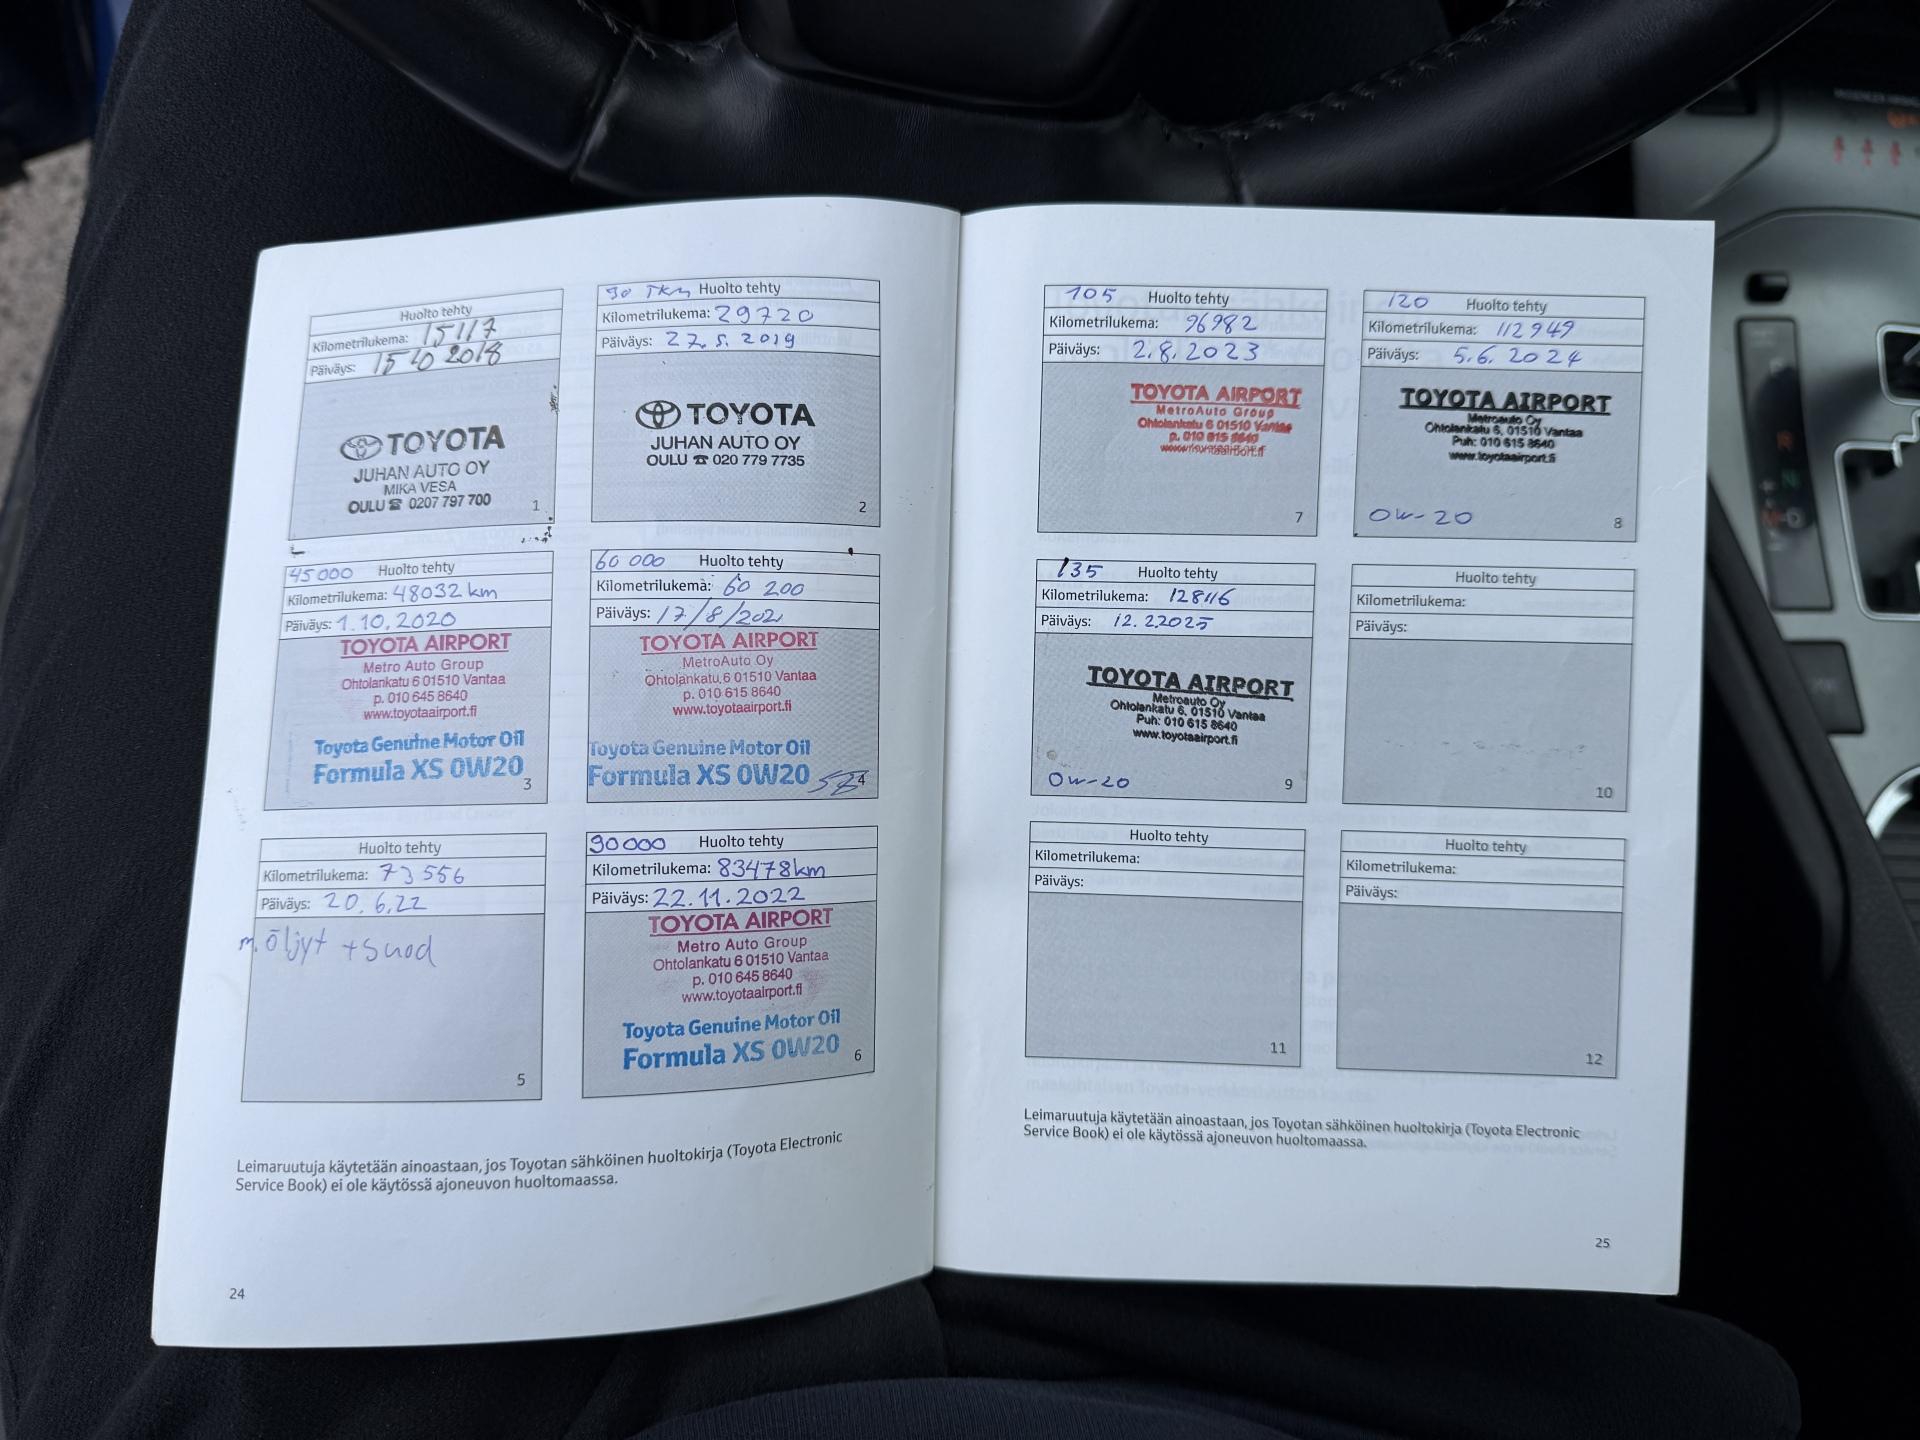 Huolto tehty
Kilometrilukema: 15117
Päiväys: 15 10 2018
TOYOTA
JUHAN AUTO OY
MIKA VESA
OULU ☎ 0207 797 700
1
30 TKM Huolto tehty
Kilometrilukema: 29720
Päiväys: 27.5.2019
TOYOTA
JUHAN AUTO OY
OULU ☎ 020 779 7735
2
45000 Huolto tehty
Kilometrilukema: 48032 km
Päiväys: 1.10.2020
TOYOTA AIRPORT
Metro Auto Group
Ohtolankatu 6 01510 Vantaa
p. 010 645 8640
www.toyotaairport.fi
Toyota Genuine Motor Oil
Formula XS 0W20
3
60 000 Huolto tehty
Kilometrilukema: 60 200
Päiväys: 17/8/2021
TOYOTA AIRPORT
MetroAuto Oy
Ohtolankatu, 6 01510 Vantaa
p. 010 615 8640
www.toyotaairport.fi
Toyota Genuine Motor Oil
Formula XS 0W20
4
Huolto tehty
Kilometrilukema: 73 556
Päiväys: 20.6.22
m. öljyt + suod
5
90000 Huolto tehty
Kilometrilukema: 83478km
Päiväys: 22.11.2022
TOYOTA AIRPORT
Metro Auto Group
Ohtolankatu 6 01510 Vantaa
p. 010 645 8640
www.toyotaairport.fi
Toyota Genuine Motor Oil
Formula XS 0W20
6
Leimaruutuja käytetään ainoastaan, jos Toyotan sähköinen huoltokirja (Toyota Electronic
Service Book) ei ole käytössä ajoneuvon huoltomaassa.
24
105 Huolto tehty
Kilometrilukema: 96982
Päiväys: 2.8.2023
TOYOTA AIRPORT
MetroAuto Group
Ohtolankatu 6 01510 Vantaa
p. 010 615 8640
7
120 Huolto tehty
Kilometrilukema: 112949
Päiväys: 5.6.2024
TOYOTA AIRPORT
Metroauto Oy
Ohtolankatu 6, 01510 Vantaa
Puh: 010 615 8640
www.toyotaairport.fi
0w-20
8
135 Huolto tehty
Kilometrilukema: 128116
Päiväys: 12.2.2025
TOYOTA AIRPORT
Metroauto Oy
Ohtolankatu 6, 01510 Vantaa
Puh: 010 615 8640
www.toyotaairport.fi
0w-20
9
Huolto tehty
Kilometrilukema:
Päiväys:
10
Huolto tehty
Kilometrilukema:
Päiväys:
11
Huolto tehty
Kilometrilukema:
Päiväys:
12
Leimaruutuja käytetään ainoastaan, jos Toyotan sähköinen huoltokirja (Toyota Electronic
Service Book) ei ole käytössä ajoneuvon huoltomaassa.
25
R
N